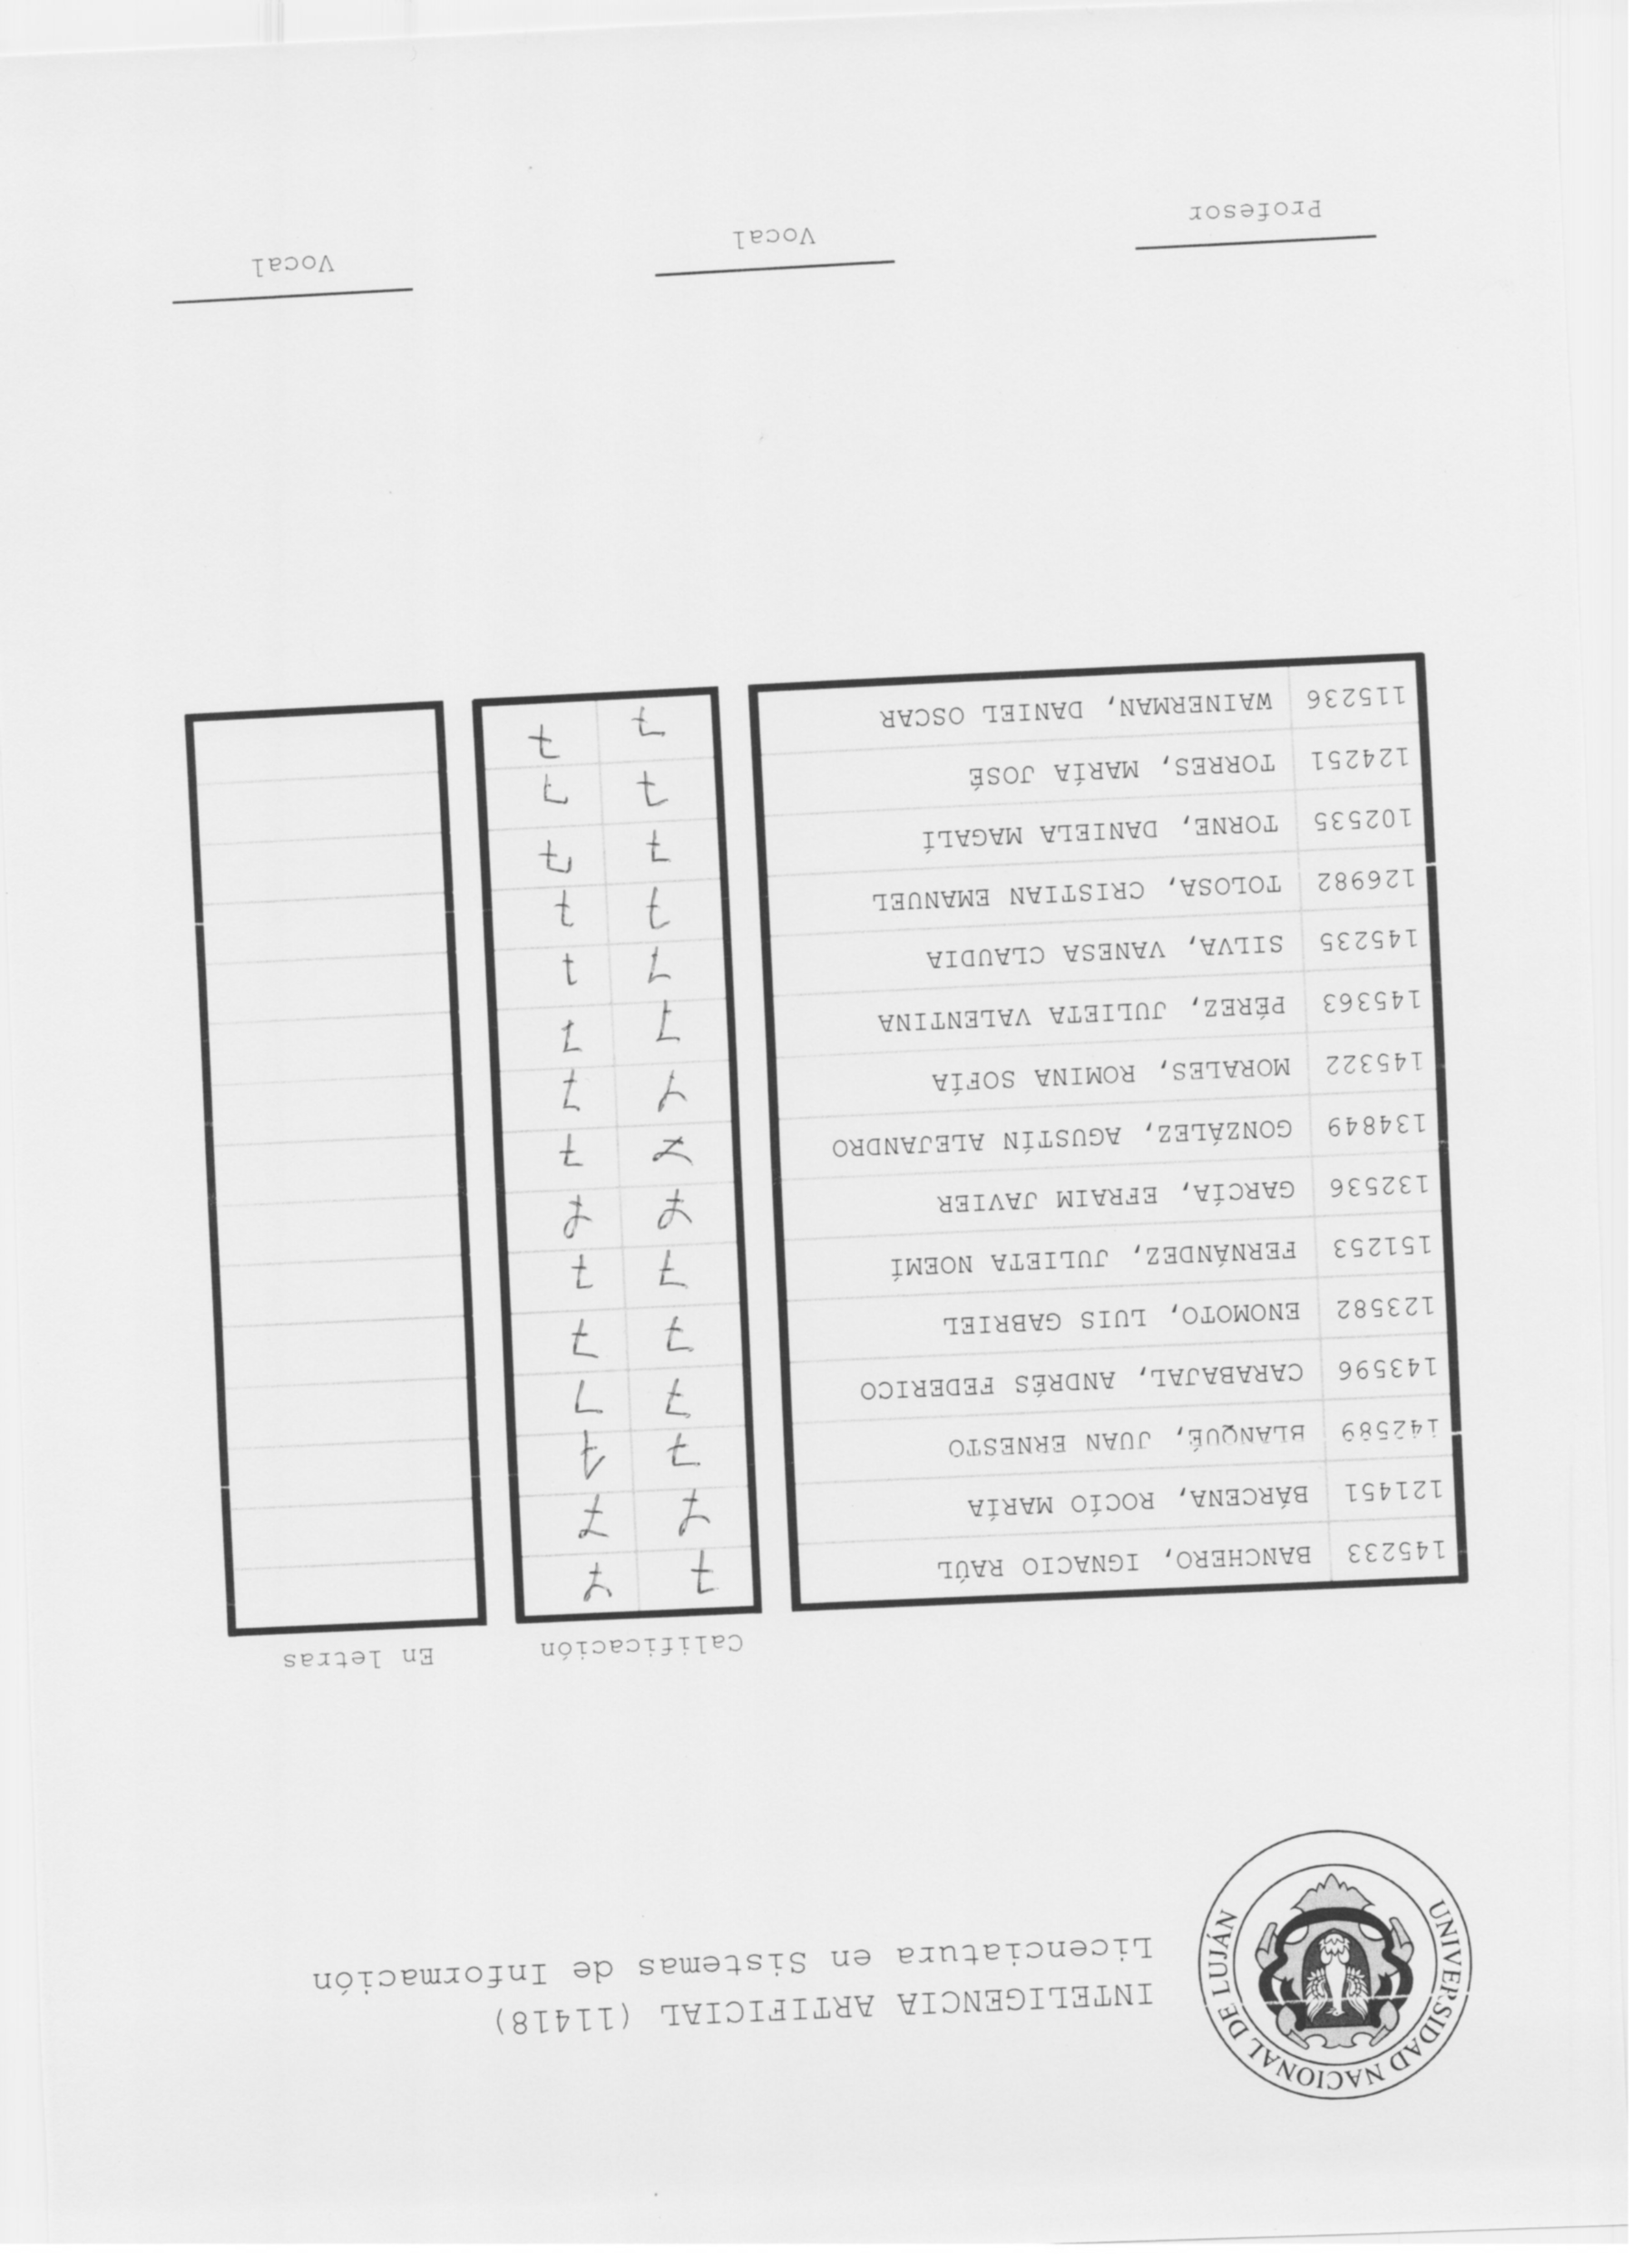 UNIVERSIDAD NACIONAL DE LUJÁN
INTELIGENCIA ARTIFICIAL (11418)
Licenciatura en Sistemas de Información
Calificación En letras
145233 BANCHERO, IGNACIO RAÚL 7 7
121451 BÁRCENA, ROCÍO MARÍA 7 7
142589 BLANQUÉ, JUAN ERNESTO 7 7
143596 CARABAJAL, ANDRÉS FEDERICO 7 7
123582 ENOMOTO, LUIS GABRIEL 7 7
151253 FERNÁNDEZ, JULIETA NOEMÍ 7 7
132536 GARCÍA, EFRAIM JAVIER 7 7
134849 GONZÁLEZ, AGUSTÍN ALEJANDRO 7 7
145322 MORALES, ROMINA SOFÍA 7 7
145363 PÉREZ, JULIETA VALENTINA 7 7
145235 SILVA, VANESA CLAUDIA 7 7
126982 TOLOSA, CRISTIAN EMANUEL 7 7
102535 TORNE, DANIELA MAGALÍ 7 7
124251 TORRES, MARÍA JOSÉ 7 7
115236 WAINERMAN, DANIEL OSCAR 7 7
Profesor Vocal Vocal